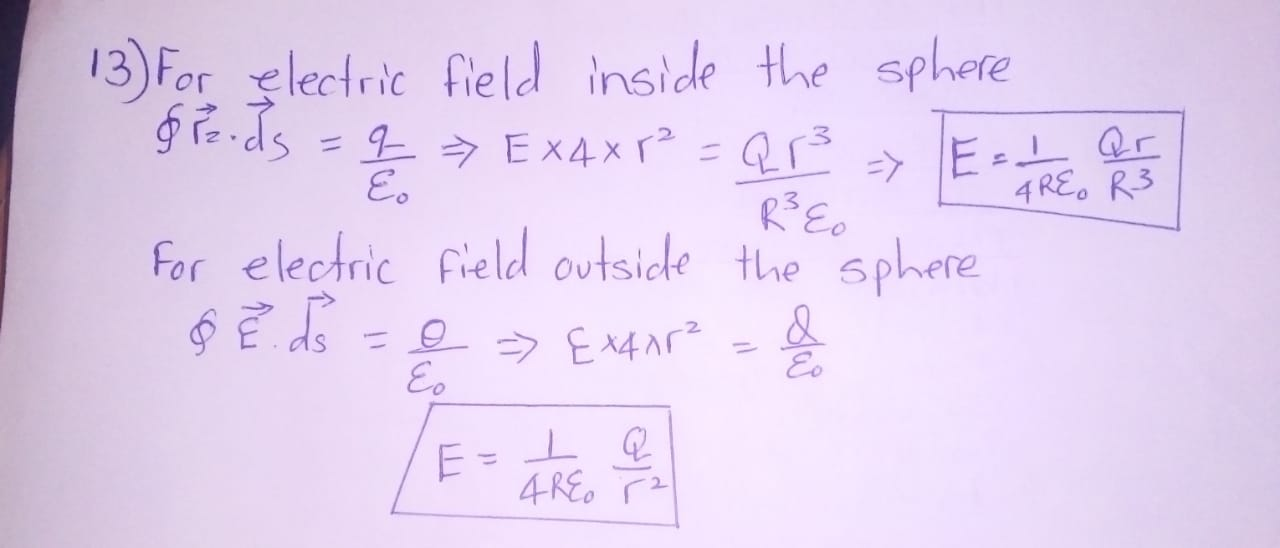 13) For electric field inside the sphere
∮ r⃗₂ . d⃗s = q/ε₀ ⇒ E × 4 × r² = Qr³/R³ε₀ ⇒ E = 1/4Rε₀ Qr/R³
For electric field outside the sphere
∮ E⃗ . d⃗s = θ/ε₀ ⇒ E × 4λr² = Q/ε₀
E = 1/4Rε₀ Q/r²